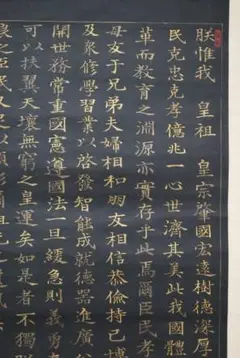 朕惟我　皇祖　皇宗肇國宏遠樹德深厚
民克忠克孝億兆一心世濟其美此我國體
華而教育之淵源亦實存乎此焉爾臣民孝
母友于兄弟夫婦相和朋友相信恭儉持己博
及衆修學習業以啓發智能成就德器進廣公
開世務常重國憲遵國法一旦緩急則義勇
可以扶翼天壤無窮之皇運矣如是者不獨